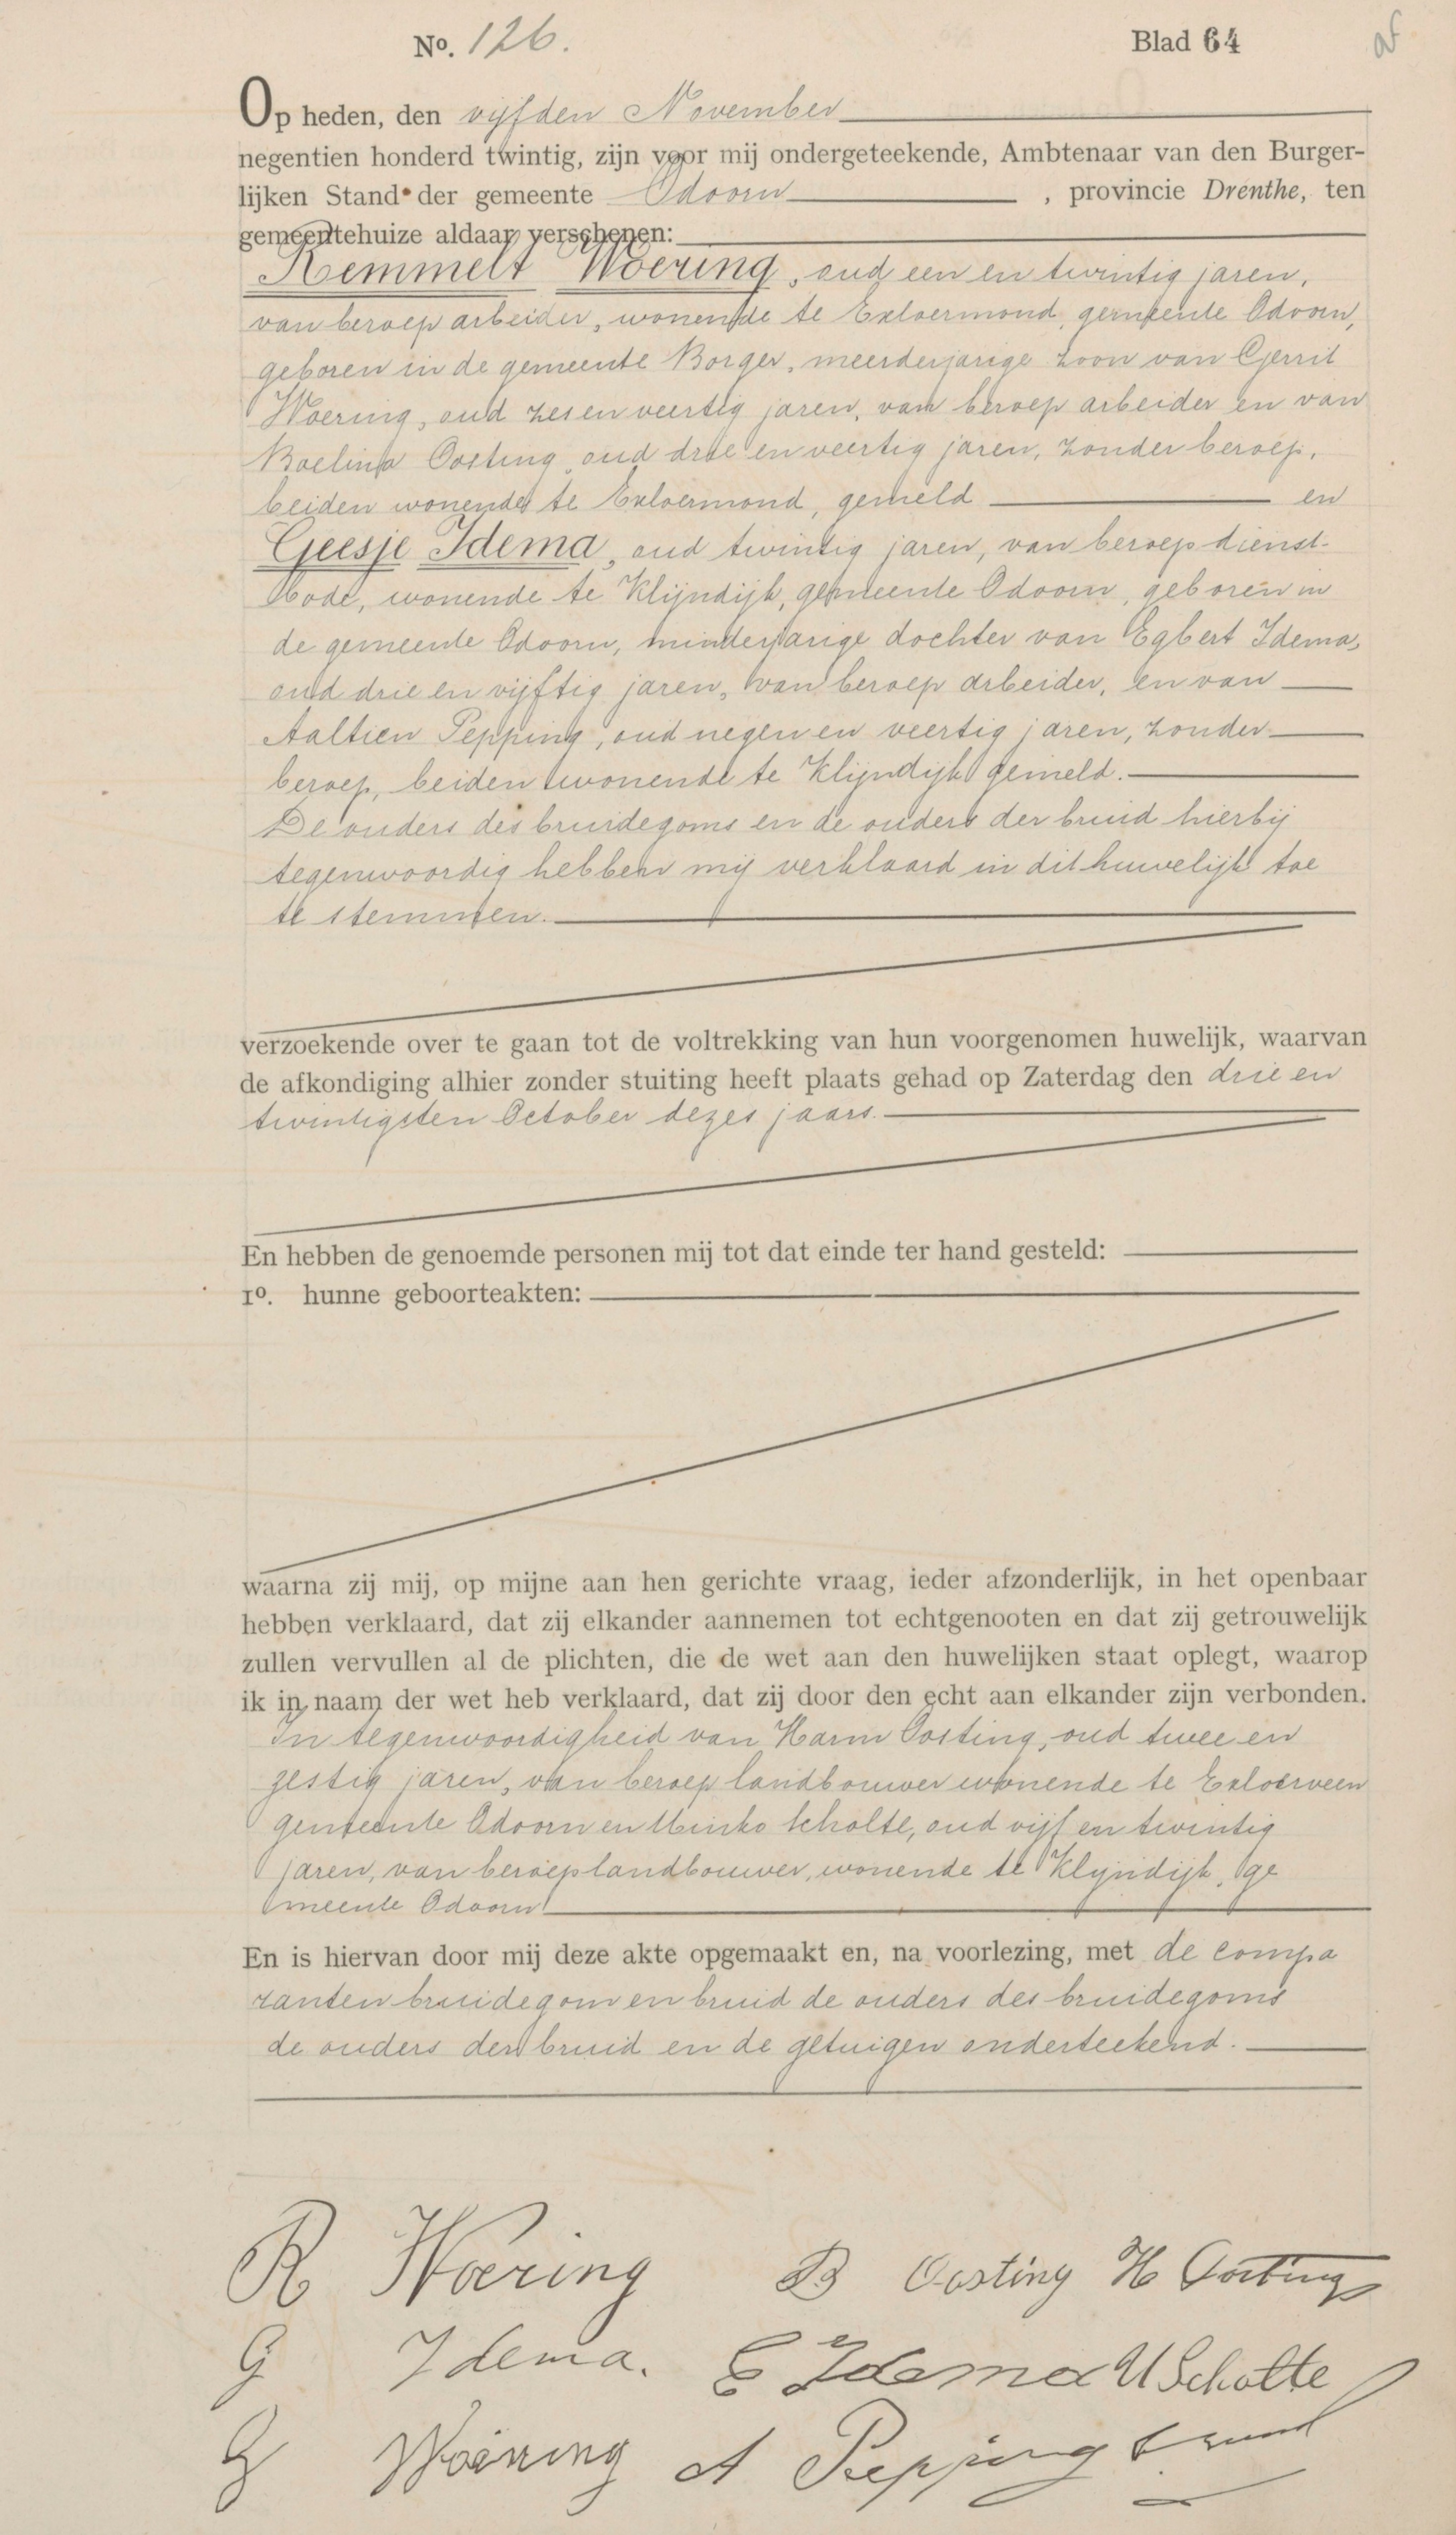 No. 126.
Blad 64
Op heden, den vijfden November
negentien honderd twintig, zijn voor mij ondergeteekende, Ambtenaar van den Burger-
lijken Stand der gemeente Odoorn, provincie Drenthe, ten
gemeentehuize aldaar verschenen:
Remmelt Woering, oud een en twintig jaren,
van beroep arbeider, wonende te Exloermond, gemeente Odoorn,
geboren in de gemeente Borger, meerderjarige zoon van Gerrit
Woering, oud zes en veertig jaren, van beroep arbeider en van
Roelina Oosting, oud drie en veertig jaren, zonder beroep,
beiden wonende te Exloermond, gemeld en
Geesje Idema, oud twintig jaren, van beroep dienst-
bode, wonende te Klijndijk, gemeente Odoorn, geboren in
de gemeente Odoorn, minderjarige dochter van Egbert Idema,
oud drie en vijftig jaren, van beroep arbeider, en van
Aaltien Pepping, oud negen en veertig jaren, zonder
beroep, beiden wonende te Klijndijk gemeld.
De ouders des bruidegoms en de ouders der bruid hierbij
tegenwoordig hebben mij verklaard in dit huwelijk toe
te stemmen.
verzoekende over te gaan tot de voltrekking van hun voorgenomen huwelijk, waarvan
de afkondiging alhier zonder stuiting heeft plaats gehad op Zaterdag den drie en
twintigsten October dezes jaars.
En hebben de genoemde personen mij tot dat einde ter hand gesteld:
1o. hunne geboorteakten:
waarna zij mij, op mijne aan hen gerichte vraag, ieder afzonderlijk, in het openbaar
hebben verklaard, dat zij elkander aannemen tot echtgenooten en dat zij getrouwelijk
zullen vervullen al de plichten, die de wet aan den huwelijken staat oplegt, waarop
ik in naam der wet heb verklaard, dat zij door den echt aan elkander zijn verbonden.
In tegenwoordigheid van Harm Oosting, oud twee en
zestig jaren, van beroep landbouwer wonende te Exloerveen
gemeente Odoorn en Uinko Scholte, oud vijf en twintig
jaren, van beroep landbouwer, wonende te Klijndijk, ge
meente Odoorn
En is hiervan door mij deze akte opgemaakt en, na voorlezing, met de compa
ranten bruidegom en bruid de ouders des bruidegoms
de ouders der bruid en de getuigen onderteekend.
R Woering B Oosting H Oosting
G Idema. E Idema U Scholte
G Woering A Pepping